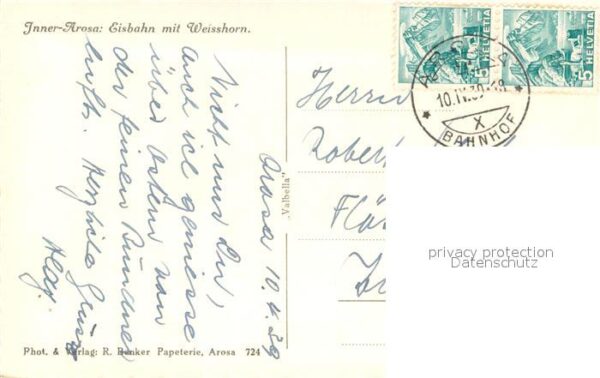 Jnner-Arosa: Eisbahn mit Weisshorn.
Arosa 10.4.39
Nicht nur Du,
auch ich geniesse
über Ostern von
der feinen Bündner
luft. Herzliche Grüsse
"Valbella"
Herrn
Robert
Phot. & Verlag: R. Benker Papeterie, Arosa 724
5 HELVETIA
5 HELVETIA
AROSA
10.IV.39
X
BAHNHOF
privacy protection
Datenschutz